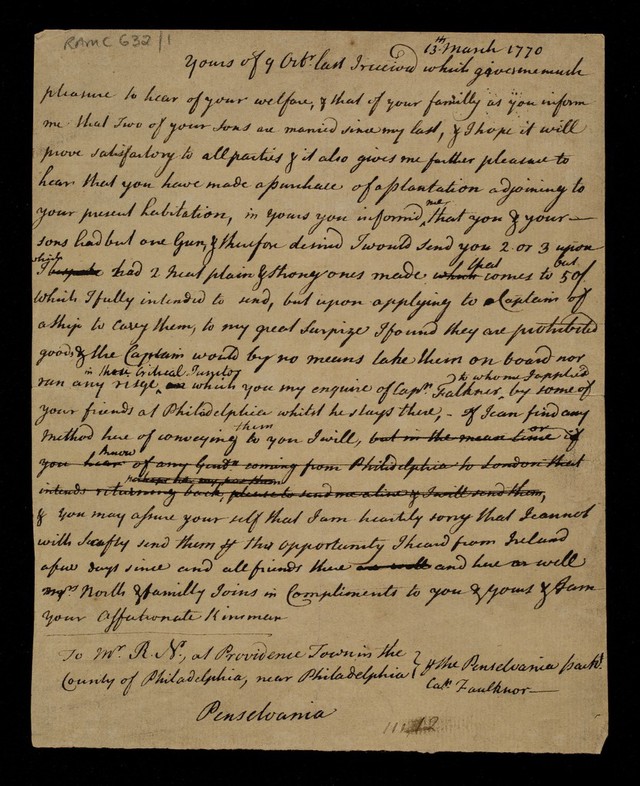 RAMC 632/1
13th March 1770
Yours of 9 Octbr. last I receivd which gives me much
pleasure to hear of your welfare, & that of your familly as you inform
me that Two of your sons are maried since my last, & I hope it will
prove satisfactory to all parties & it also gives me further pleasure to
hear that you have made a purchace of a plantation adjoining to
your present habitation, in yours you informd me that you & your
sons had but one Gun, & therefore desired I would send you 2 or 3 upon
which
I bespoke had 2 neat plain & strong ones made which that comes to but 50/
which I fully intended to send, but upon applying to a Captain of
a ship to carey them, to my great Surprize I found they are prohibited
goods & the Captain would by no means take them on board nor
in these Critical Juncto
run any risqe, which you may enquire of Capn. Falkner, to whome I applied by some of
your friends at Philadelphia whilst he stays there, - If I can find any
Method here of conveying them to you I will, but in the mean time if or
you hear know of any Gentn. coming from Philadelphia to London that
perhaps he may pas them
intends returning back, please to send me a line & I will send them,
& you may assure your self that I am heartily sorry that I cannot
with Scafty send them this opportunity I heard from Ireland
a few days since and all friends there are well and here as well
Mrs North & familly Joins in Compliments to you & yours & I am
your Affectionate Kinsman
To Mr. R. N., at Providence Town in the
County of Philadelphia, near Philadelphia
Penselvania
the Penselvania packt.
Capt. Faulknor